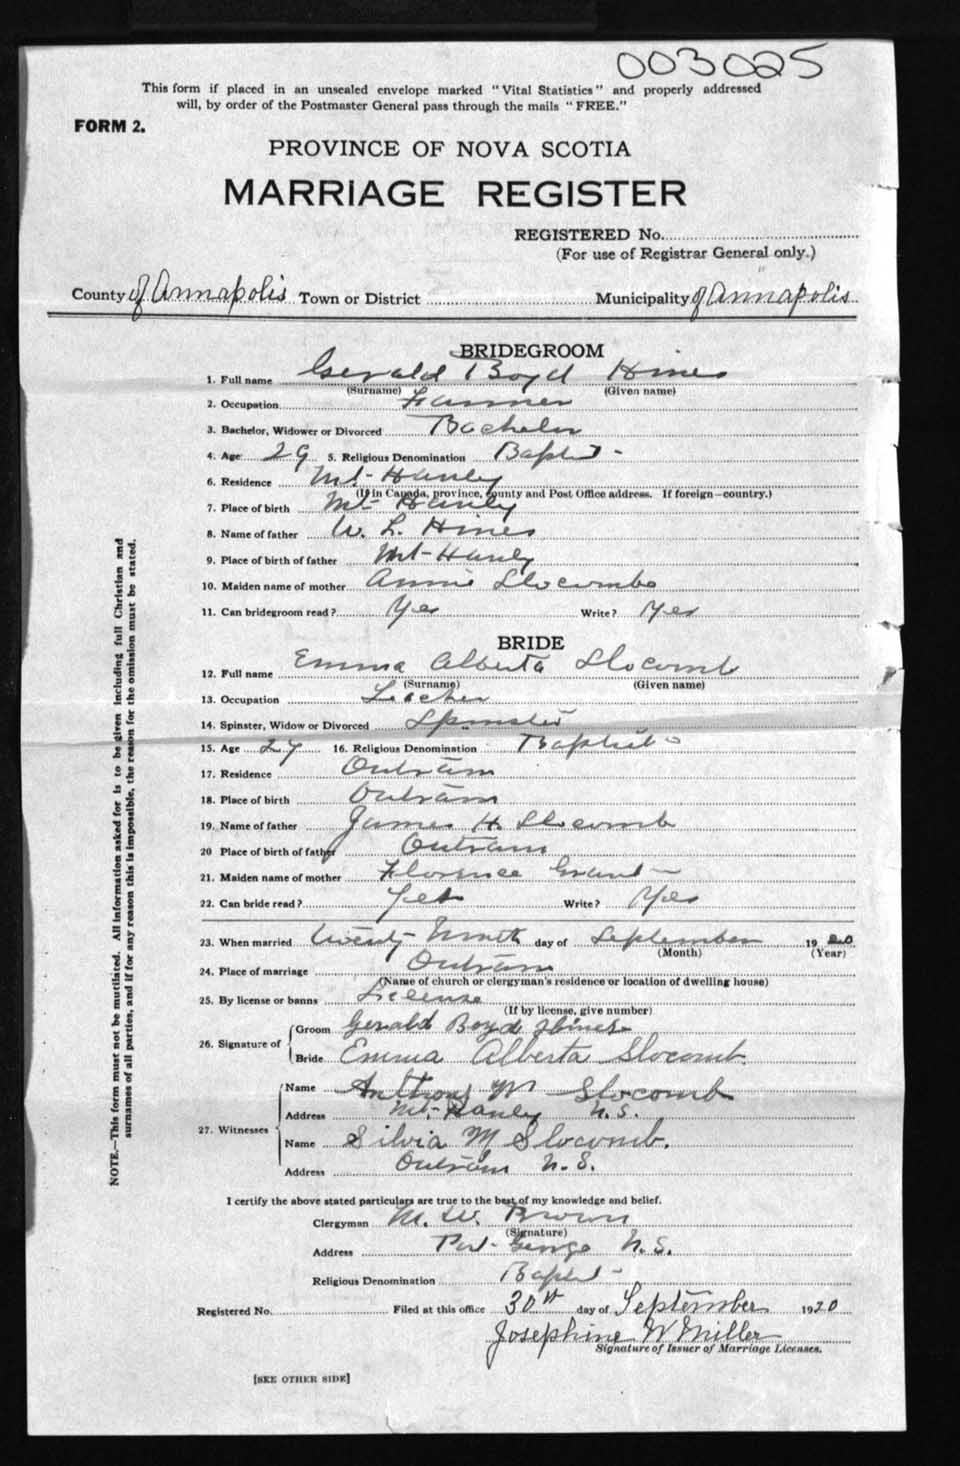 003025
This form if placed in an unsealed envelope marked "Vital Statistics" and properly addressed
will, by order of the Postmaster General pass through the mails "FREE."
FORM 2.
PROVINCE OF NOVA SCOTIA
MARRIAGE REGISTER
REGISTERED No.
(For use of Registrar General only.)
County of Annapolis Town or District Municipality of Annapolis
BRIDEGROOM
1. Full name Gerald Boyd Hines
(Surname) (Given name)
2. Occupation Farmer
3. Bachelor, Widower or Divorced Bachelor
4. Age 29 5. Religious Denomination Baptist
6. Residence Mt- Hanley
(If in Canada, province, county and Post Office address. If foreign-country.)
7. Place of birth Mt- Hanley
8. Name of father W. L. Hines
9. Place of birth of father Mt- Hanley
10. Maiden name of mother Annie Slocombe
11. Can bridegroom read? Yes Write? Yes
BRIDE
12. Full name Emma Alberta Slocomb
(Surname) (Given name)
13. Occupation Teacher
14. Spinster, Widow or Divorced Spinster
15. Age 27 16. Religious Denomination Baptist
17. Residence Outram
18. Place of birth Outram
19. Name of father James H. Slocomb
20 Place of birth of father Outram
21. Maiden name of mother Florence Grant
22. Can bride read? Yes Write? Yes
23. When married Twenty Ninth day of September 1920
(Month) (Year)
24. Place of marriage Outram
(Name of church or clergyman's residence or location of dwelling house)
25. By license or banns License
(If by license, give number)
26. Signature of Groom Gerald Boyd Hines
Bride Emma Alberta Slocomb
27. Witnesses Name Anthony W Slocomb
Address Mt- Hanley N.S.
Name Silvia M Slocomb.
Address Outram N.S.
I certify the above stated particulars are true to the best of my knowledge and belief.
Clergyman M. W. Brown
(Signature)
Address Port George N.S.
Religious Denomination Baptist
Registered No. Filed at this office 30th day of September 1920
Josephine W Miller
Signature of Issuer of Marriage Licenses.
[SEE OTHER SIDE]
NOTE.—This form must not be mutilated. All information asked for is to be given including full Christian and
surnames of all parties, and if for any reason this is impossible, the reason for the omission must be stated.